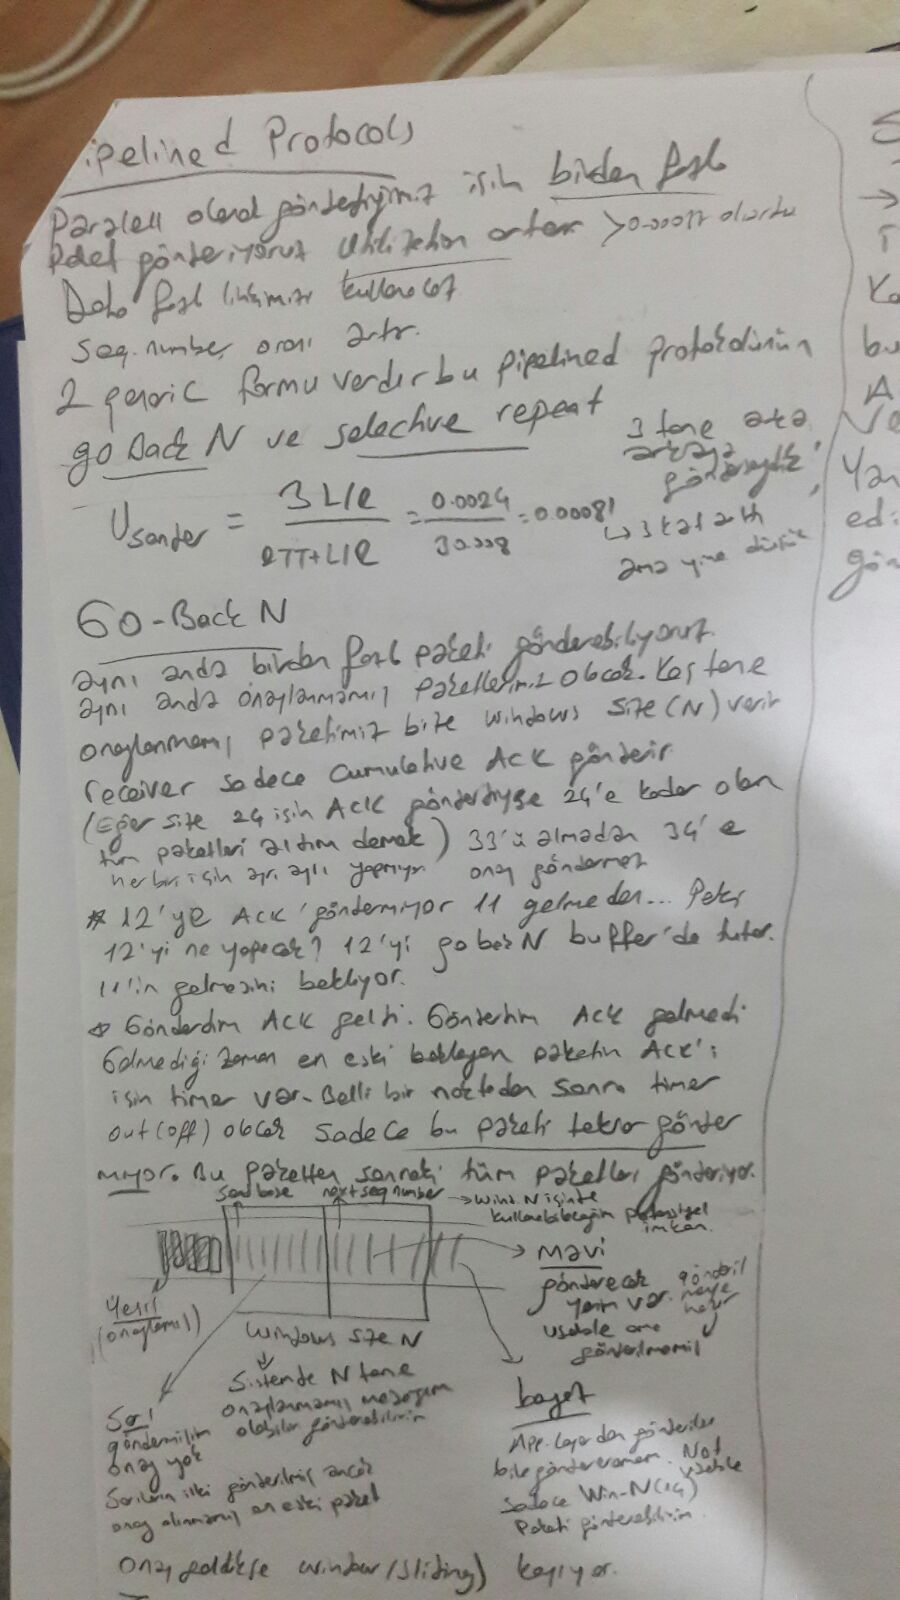 ipelined Protocols
Paralell olarak gönderdiğimiz için birden fazla
Paket gönderiyoruz utilization artar >0.00027 olurdu
Daha fazla linkimizi kullanacaz
Seq. number, oranı artr.
2 generic formu vardır bu pipelined protokolünün
go back N ve selective repeat
3 tane arka arkaya gönderseydik,
Usender = 3L/R / RTT+L/R = 0.0024 / 30.008 = 0.00081
↳ 3 kat arttı
ama yine düşük
Go-Back N
aynı anda birden fazla paketi gönderebiliyoruz.
aynı anda onaylanmamış paketlerimiz olacak. Kaç tane
onaylanmamış paketimiz bize windows size (N) verir
receiver sadece cumulative ACK gönderir
(Eğer size 24 için ACK gönderdiyse 24'e kadar olan
tüm paketleri aldım demek) 33'ü almadan 34'e
her biri için ayrı ayrı yapmıyor onay göndermez
* 12'ye ACK göndermiyor 11 gelmeden... Peki
12'yi ne yapacak? 12'yi go back N buffer'de tutar.
11'in gelmesini bekliyor.
Gönderdim ACK geldi. Gönderdim ACK gelmedi
Gelmediği zaman en eski bekleyen paketin ACK'i
için timer var. Belli bir noktadan sonra timer
out(off) olacak sadece bu paketi tekrar gönder
miyor. Bu paketten sonraki tüm paketleri gönderiyor.
send base next seq number → Wind N içinde
kullanabileceğim potansiyel
imkan.
Mavi
gönderecek
yerim var.
usable ama
gönderilmemiş
Yeşil
(onaylanmış)
Windows size N
↓
Sistemde N tane
onaylanmamış mesajım
olabilir gönderebilirim
Sarı
göndermişim
onay yok
Sarıların ilki gönderilmiş ancak
onay alınmamış en eski paket
beyaz
App. layerdan gönderilse
bile gönderemem. Not
usable
sadece Win-N(14)
Paketi gönderebilirim.
Onay geldikçe window (sliding) kayıyor.